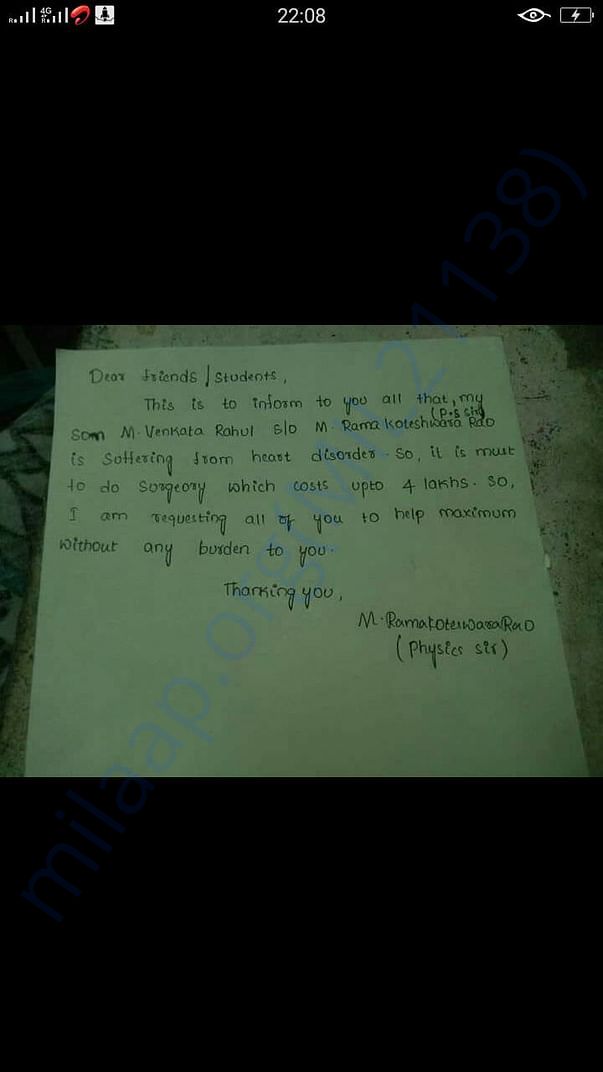 22:08
Dear friends / Students,
This is to inform to you all that, my
(P.S sir)
Son M. Venkata Rahul S/o M. Rama koteshwara Rao
is Suffering from heart disorder. So, it is must
to do Surgeory which costs upto 4 lakhs. So,
I am requesting all of you to help maximum
without any burden to you.
Thanking you,
M. RamakoteswaraRao
(physics sir)
milaap.org(MIL21138)